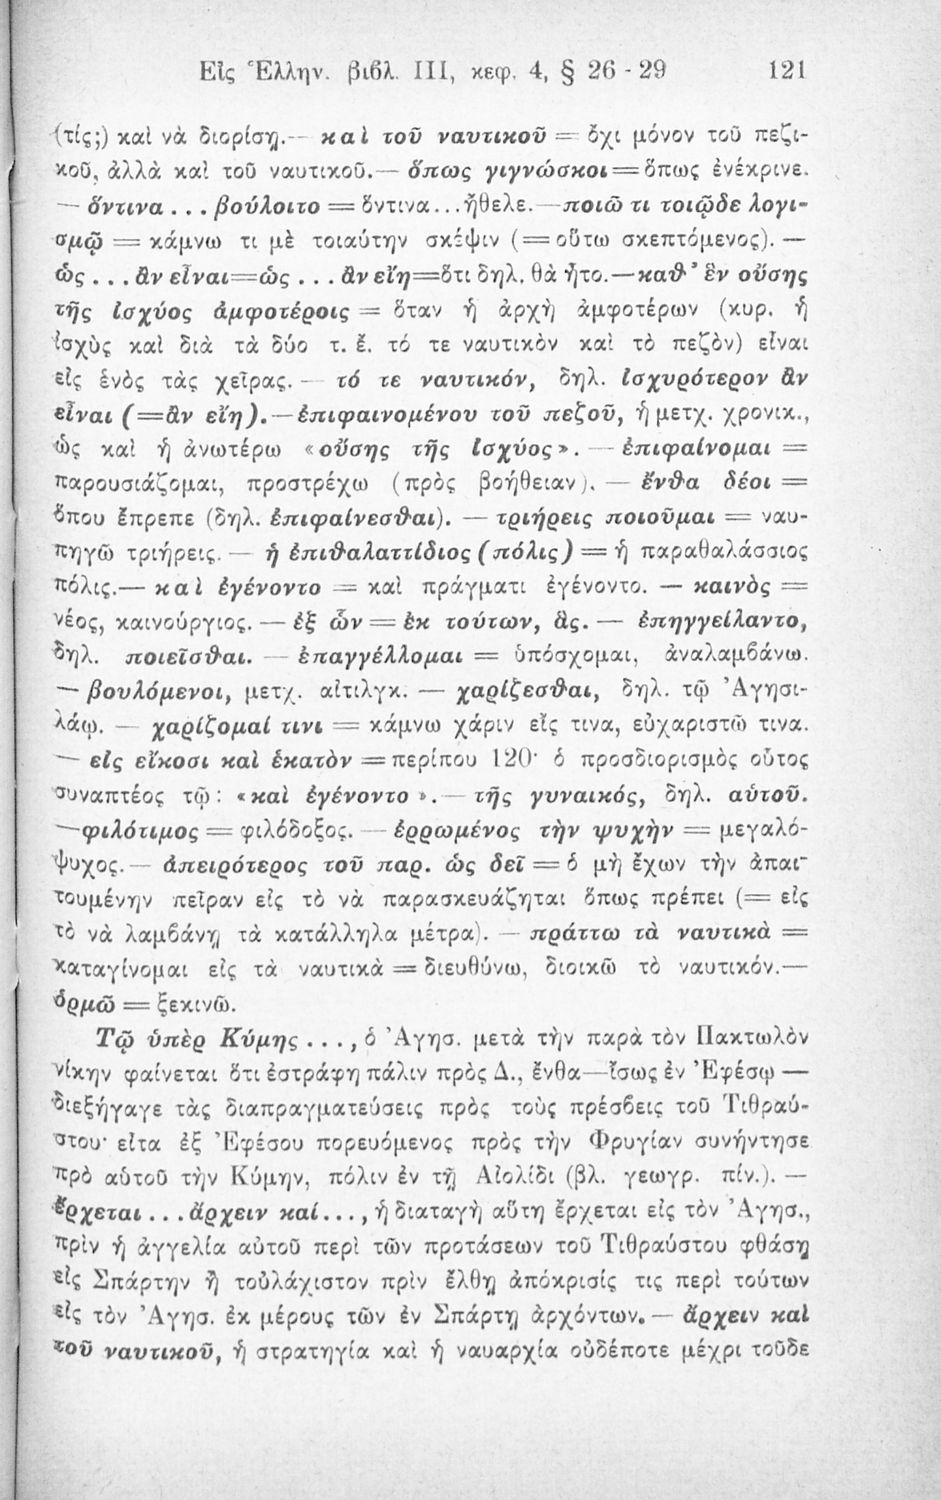 Εἰς Ἑλλην. βιβλ. III, κεφ. 4, § 26 - 29 121
(τίς;) καὶ νὰ διορίσῃ.— καὶ τοῦ ναυτικοῦ = ὄχι μόνον τοῦ πεζι-
κοῦ, ἀλλὰ καὶ τοῦ ναυτικοῦ.— ὅπως γιγνώσκοι = ὅπως ἐνέκρινε.
— ὅντινα . . . βούλοιτο = ὅντινα...ἤθελε.—ποιῶ τι τοιῷδε λογι-
σμῷ = κάμνω τι μὲ τοιαύτην σκέψιν (= οὕτω σκεπτόμενος). —
ὡς . . . ἂν εἶναι=ὡς . . . ἂν εἴη=ὅτι δηλ. θὰ ἦτο.—καθ' ἓν οὔσης
τῆς ἰσχύος ἀμφοτέροις = ὅταν ἡ ἀρχὴ ἀμφοτέρων (κυρ. ἡ
ἰσχὺς καὶ διὰ τὰ δύο τ. ἔ. τό τε ναυτικὸν καὶ τὸ πεζὸν) εἶναι
εἰς ἑνὸς τὰς χεῖρας. — τό τε ναυτικόν, δηλ. ἰσχυρότερον ἂν
εἶναι (=ἂν εἴη).—ἐπιφαινομένου τοῦ πεζοῦ, ἡ μετχ. χρονικ.,
ὡς καὶ ἡ ἀνωτέρω «οὔσης τῆς ἰσχύος». — ἐπιφαίνομαι =
παρουσιάζομαι, προστρέχω (πρὸς βοήθειαν). — ἔνθα δέοι =
ὅπου ἔπρεπε (δηλ. ἐπιφαίνεσθαι). — τριήρεις ποιοῦμαι = ναυ-
πηγῶ τριήρεις. — ἡ ἐπιθαλαττίδιος (πόλις) = ἡ παραθαλάσσιος
πόλις.— καὶ ἐγένοντο = καὶ πράγματι ἐγένοντο. — καινὸς =
νέος, καινούργιος. — ἐξ ὧν = ἐκ τούτων, ἃς. — ἐπηγγείλαντο,
δηλ. ποιεῖσθαι. — ἐπαγγέλλομαι = ὑπόσχομαι, ἀναλαμβάνω.
— βουλόμενοι, μετχ. αἰτιλγκ. — χαρίζεσθαι, δηλ. τῷ Ἀγησι-
λάῳ. — χαρίζομαί τινι = κάμνω χάριν εἰς τινα, εὐχαριστῶ τινα.
— εἰς εἴκοσι καὶ ἑκατὸν = περίπου 120· ὁ προσδιορισμὸς οὗτος
συναπτέος τῷ: «καὶ ἐγένοντο». — τῆς γυναικός, δηλ. αὑτοῦ.
—φιλότιμος = φιλόδοξος. — ἐρρωμένος τὴν ψυχὴν = μεγαλό-
ψυχος.— ἀπειρότερος τοῦ παρ. ὡς δεῖ = ὁ μὴ ἔχων τὴν ἀπαι-
τουμένην πεῖραν εἰς τὸ νὰ παρασκευάζηται ὅπως πρέπει (= εἰς
τὸ νὰ λαμβάνῃ τὰ κατάλληλα μέτρα). — πράττω τὰ ναυτικὰ =
καταγίνομαι εἰς τὰ ναυτικὰ = διευθύνω, διοικῶ τὸ ναυτικόν.—
ὁρμῶ = ξεκινῶ.
Τῷ ὑπὲρ Κύμης . . . , ὁ Ἀγησ. μετὰ τὴν παρὰ τὸν Πακτωλὸν
νίκην φαίνεται ὅτι ἐστράφη πάλιν πρὸς Δ., ἔνθα—ἴσως ἐν Ἐφέσῳ —
διεξήγαγε τὰς διαπραγματεύσεις πρὸς τοὺς πρέσβεις τοῦ Τιθραύ-
στου· εἶτα ἐξ Ἐφέσου πορευόμενος πρὸς τὴν Φρυγίαν συνήντησε
πρὸ αὑτοῦ τὴν Κύμην, πόλιν ἐν τῇ Αἰολίδι (βλ. γεωγρ. πίν.). —
ἔρχεται . . . ἄρχειν καί..., ἡ διαταγὴ αὕτη ἔρχεται εἰς τὸν Ἀγησ.,
πρὶν ἡ ἀγγελία αὐτοῦ περὶ τῶν προτάσεων τοῦ Τιθραύστου φθάσῃ
εἰς Σπάρτην ἢ τοὐλάχιστον πρὶν ἔλθῃ ἀπόκρισίς τις περὶ τούτων
εἰς τὸν Ἀγησ. ἐκ μέρους τῶν ἐν Σπάρτῃ ἀρχόντων. — ἄρχειν καὶ
τοῦ ναυτικοῦ, ἡ στρατηγία καὶ ἡ ναυαρχία οὐδέποτε μέχρι τοῦδε